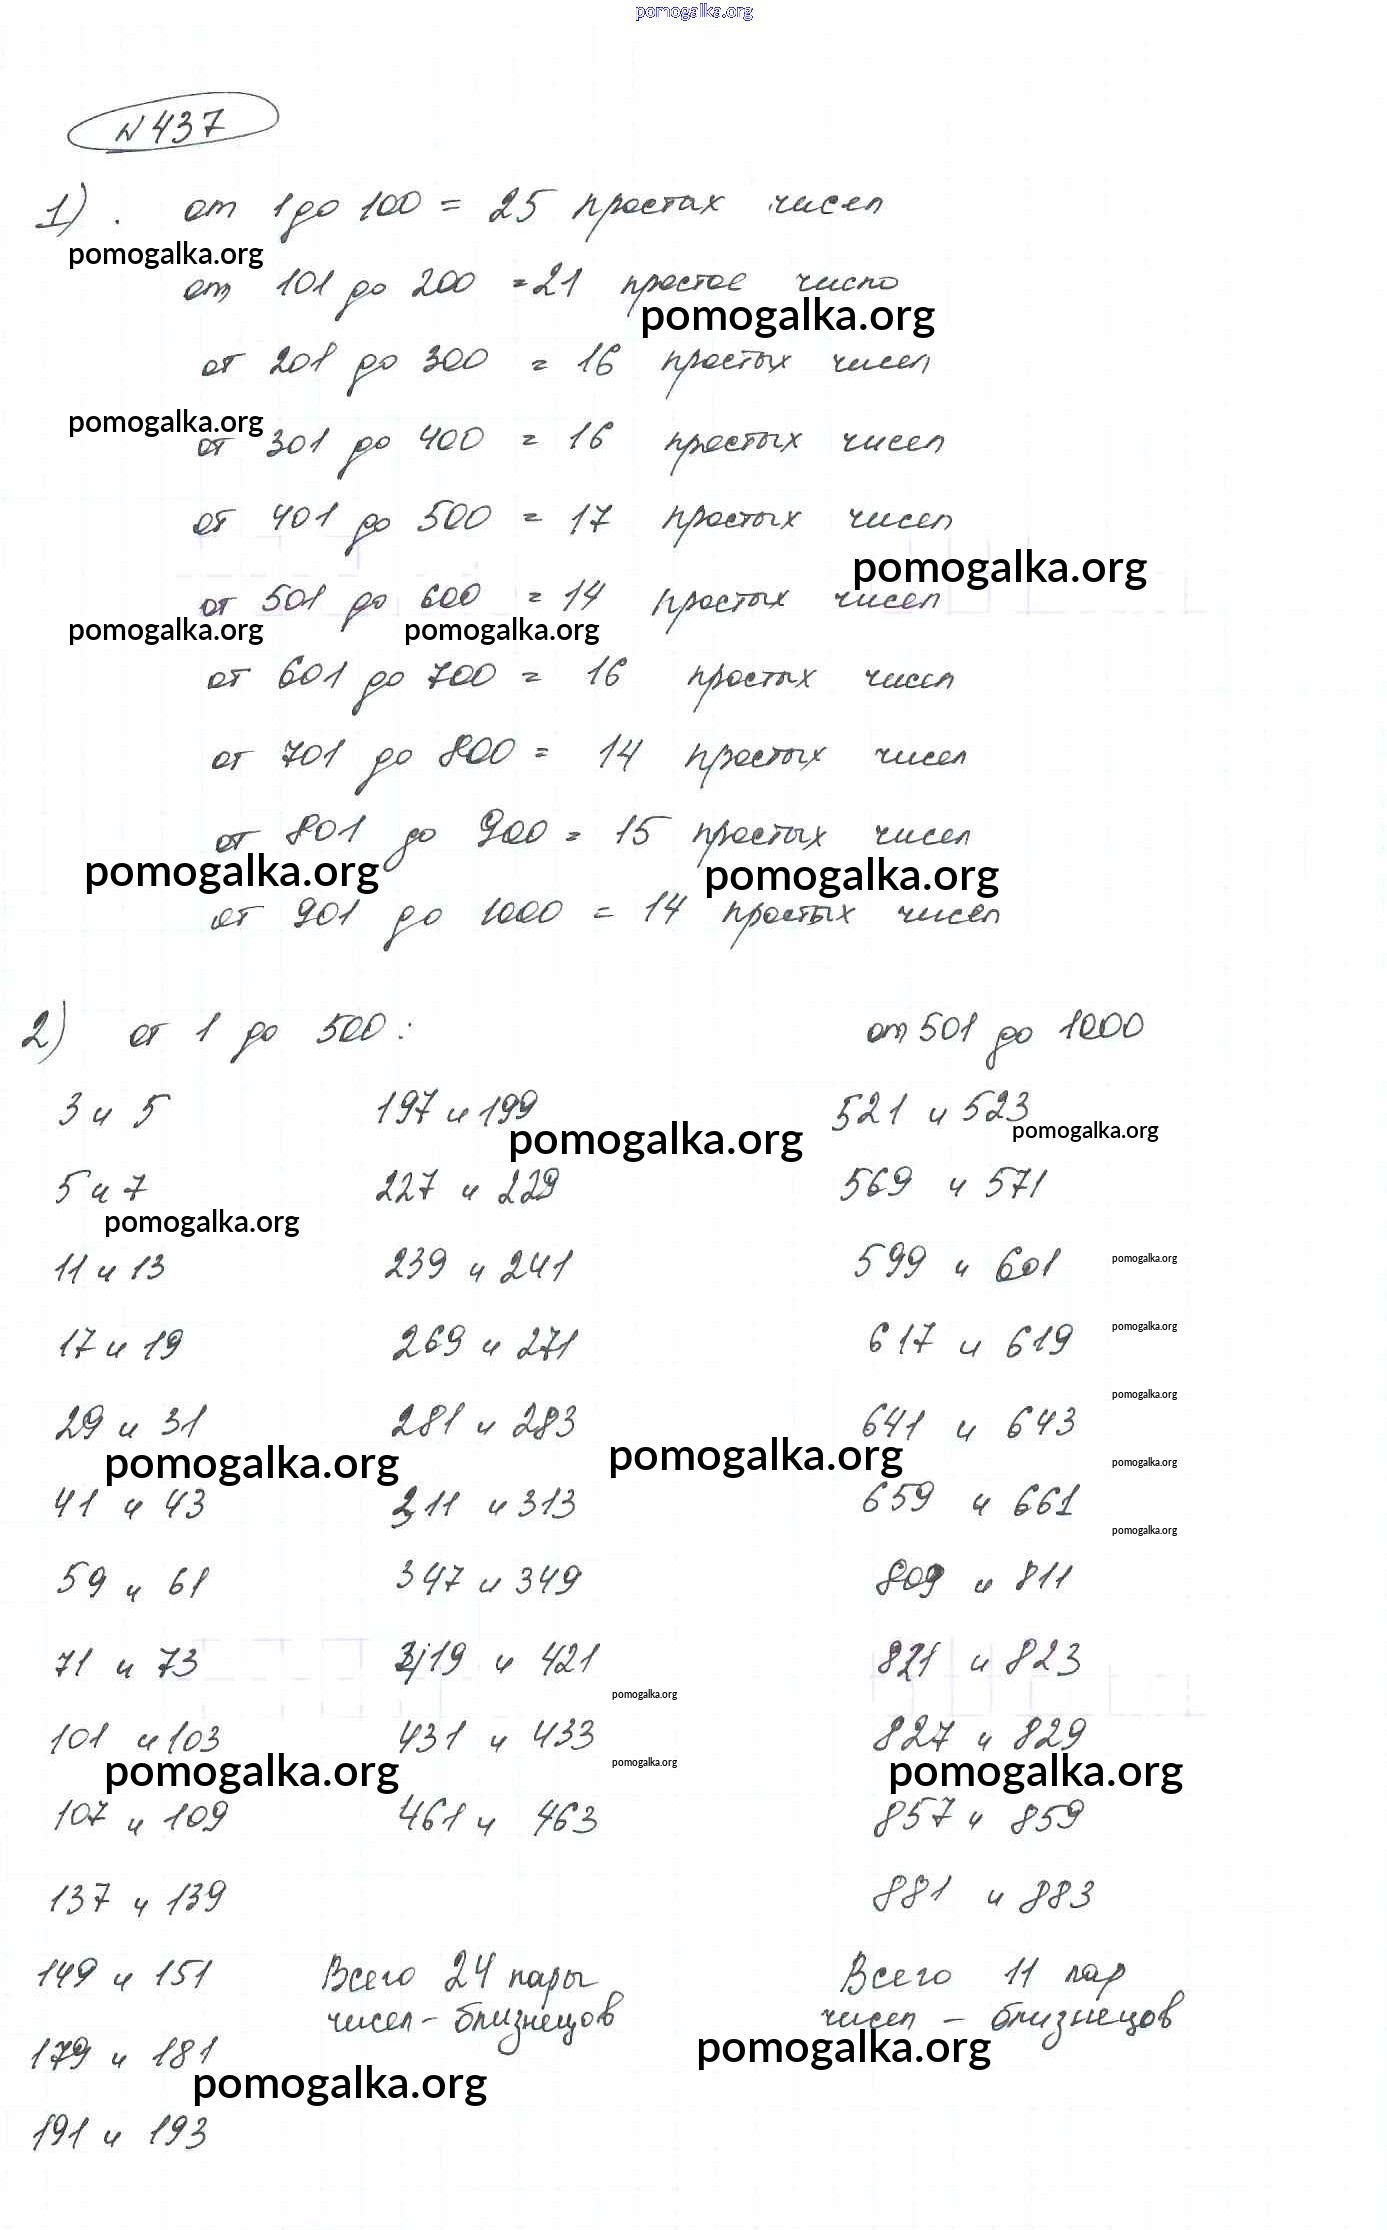 pomogalka.org
№437
1). от 1 до 100 = 25 простах чисел
pomogalka.org
от 101 до 200 = 21 простое число
pomogalka.org
от 201 до 300 = 16 простых чисел
pomogalka.org
от 301 до 400 = 16 простых чисел
от 401 до 500 = 17 простых чисел
pomogalka.org
от 501 до 600 = 14 простых чисел
pomogalka.org pomogalka.org
от 601 до 700 = 16 простых чисел
от 701 до 800 = 14 простых чисел
от 801 до 900 = 15 простых чисел
pomogalka.org pomogalka.org
от 901 до 1000 = 14 простых чисел
2) от 1 до 500: от 501 до 1000
3 и 5 197 и 199 521 и 523
pomogalka.org pomogalka.org
5 и 7 227 и 229 569 и 571
pomogalka.org
11 и 13 239 и 241 599 и 601 pomogalka.org
17 и 19 269 и 271 617 и 619 pomogalka.org
29 и 31 281 и 283 641 и 643 pomogalka.org
pomogalka.org pomogalka.org pomogalka.org
41 и 43 311 и 313 659 и 661
pomogalka.org
59 и 61 347 и 349 809 и 811
71 и 73 419 и 421 821 и 823
pomogalka.org
101 и 103 431 и 433 827 и 829
pomogalka.org pomogalka.org pomogalka.org
107 и 109 461 и 463 857 и 859
137 и 139 881 и 883
149 и 151 Всего 24 пары Всего 11 пар
чисел - близнецов чисел - близнецов
179 и 181 pomogalka.org
pomogalka.org
191 и 193